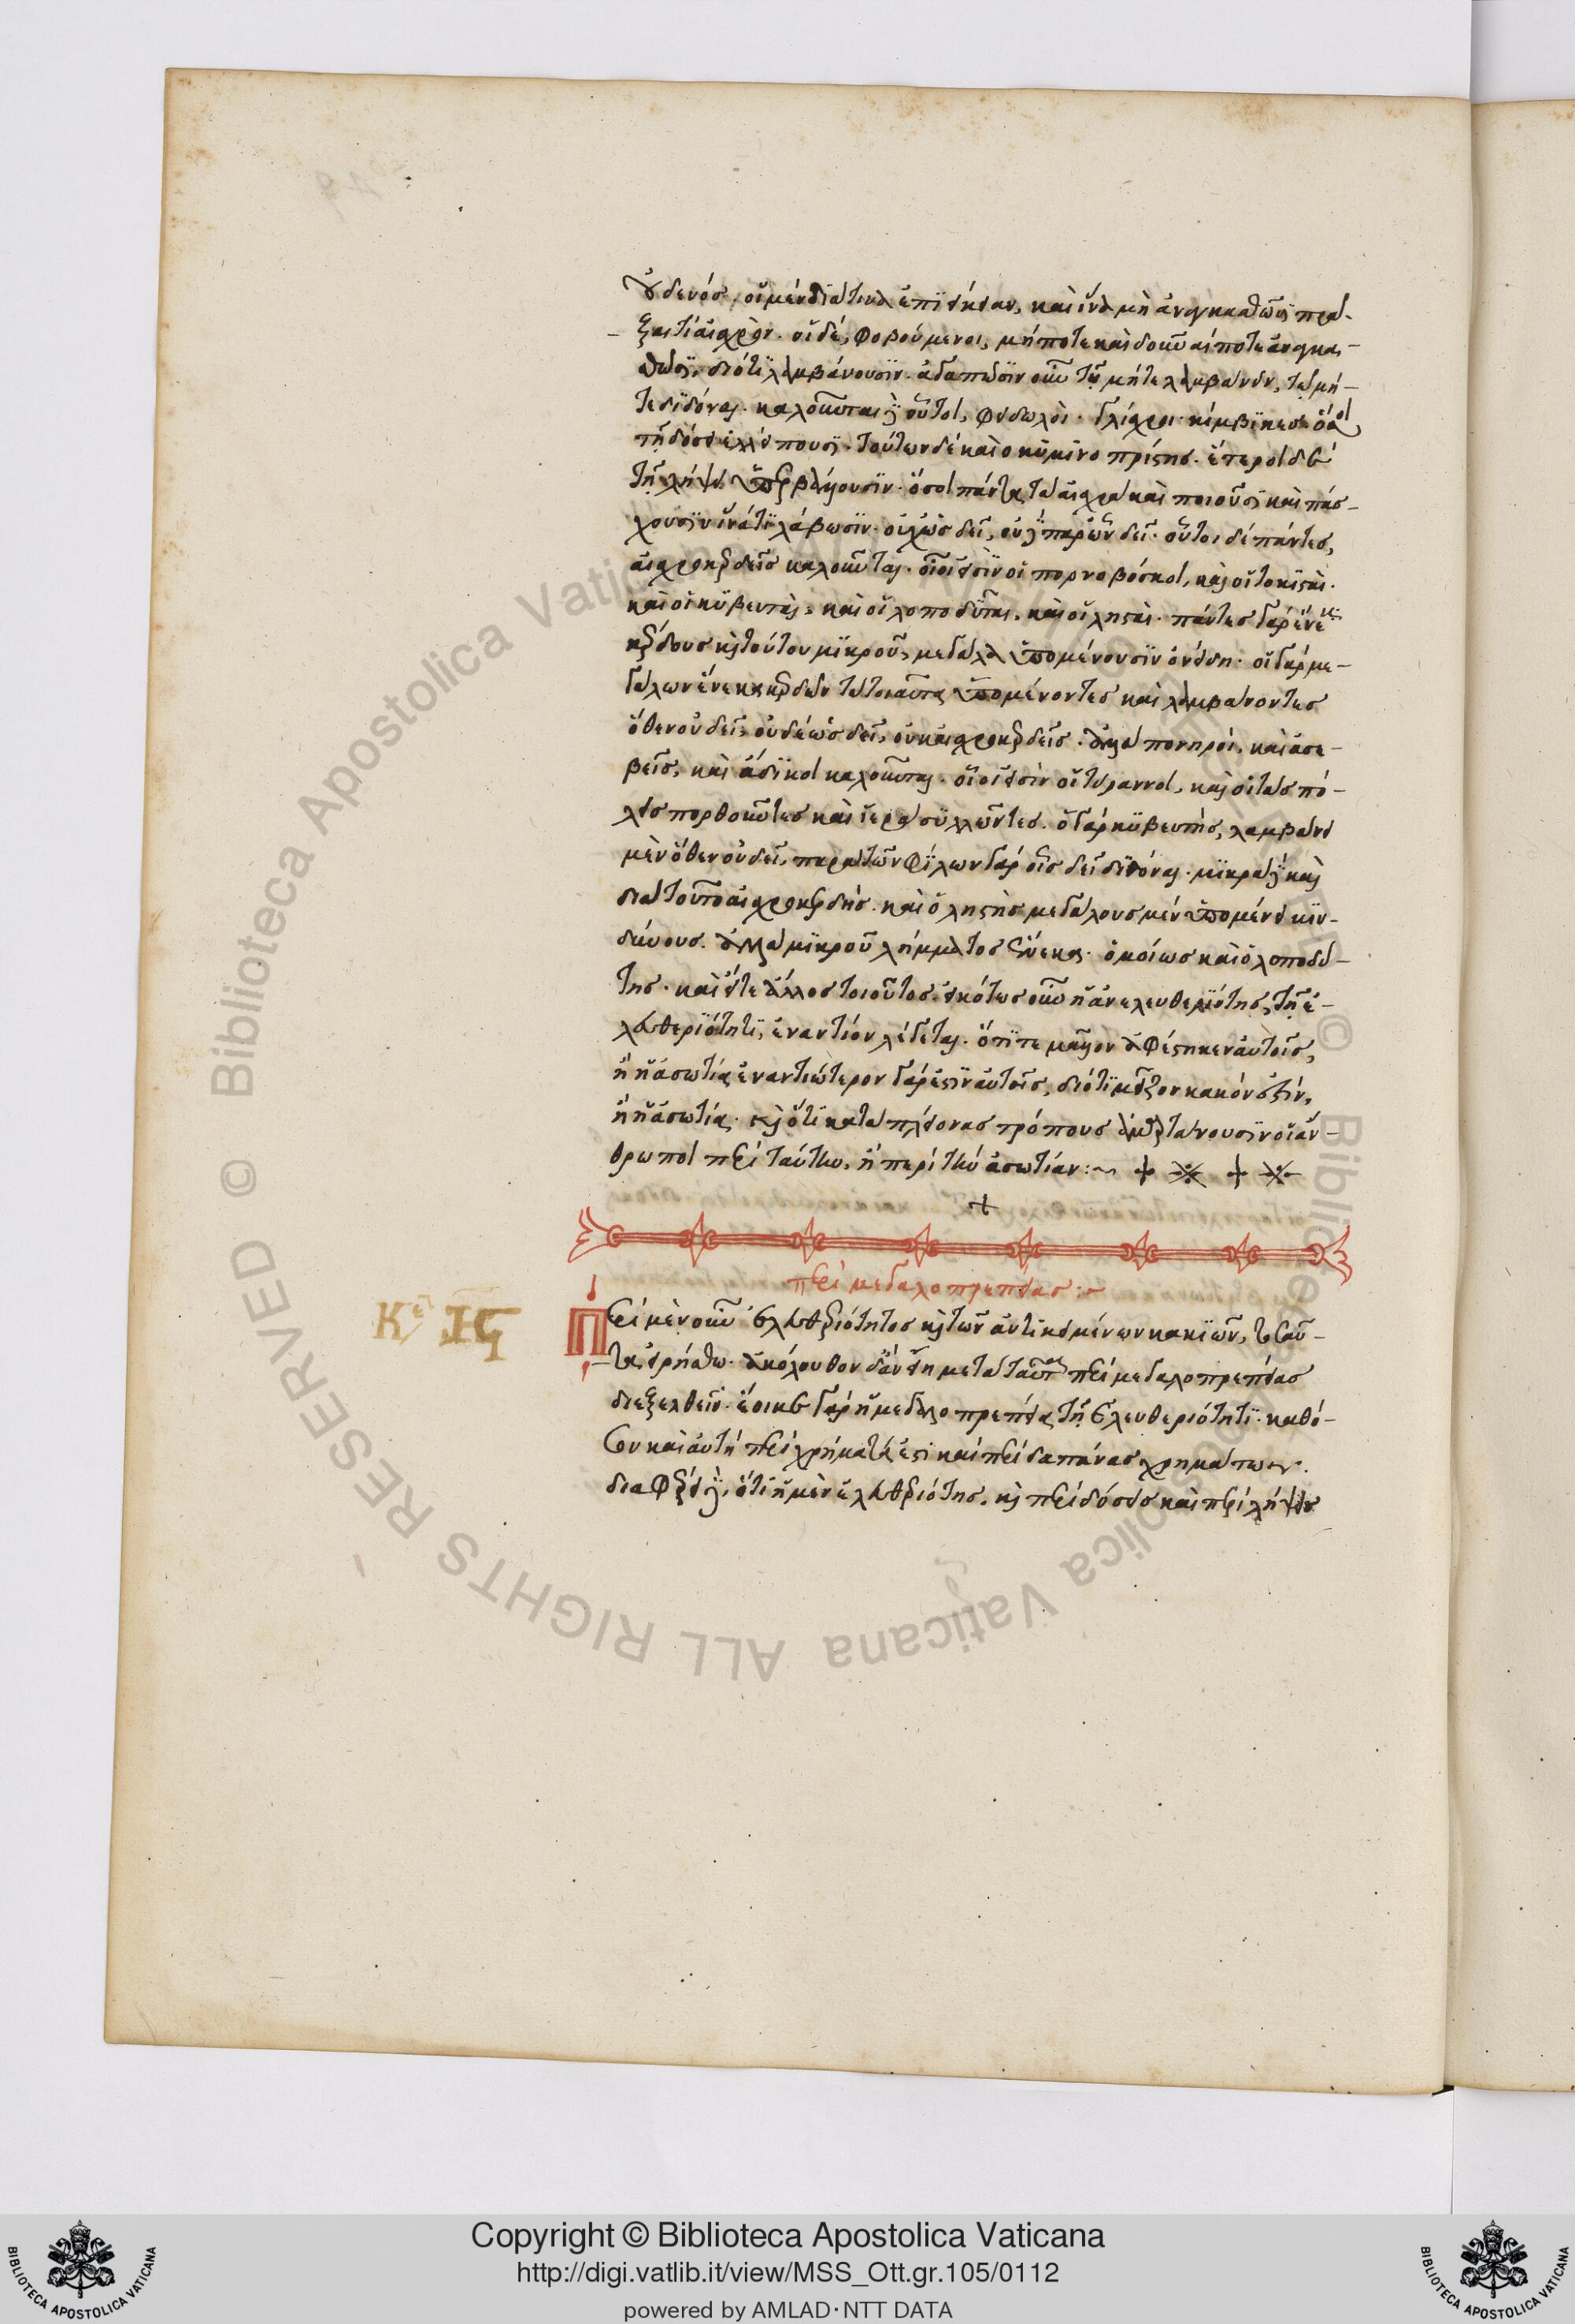 οὐδενός. οἱ μὲν διά τινα ἐπιείκειαν, καὶ ἵνα μὴ ἀναγκασθῶσι πρᾶ-
ξαί τι αἰσχρόν. οἱ δὲ, φοβούμενοι, μήποτε καὶ δοῦναί ποτε ἀναγκασ-
θῶσι, διότι λαμβάνουσιν. ἀγαπῶσιν οὖν τὸ μήτε λαμβάνειν, τὸ μή-
τε διδόναι. καλοῦνται δὲ οὗτοι, φειδωλοὶ. γλίσχροι. κίμβικες. ὅσοι
τῇ δόσει ἐλλείπουσι. τούτων δὲ καὶ ὁ κυμινοπρίστης. ἕτεροι δὲ
τῇ λήψει ὑπερβάλλουσιν. ὅσοι πάντα τὰ αἰσχρὰ καὶ ποιοῦσι καὶ πάσ-
χουσιν ἵνα τι λάβωσιν. οὐχ ὡς δεῖ, οὐδὲ παρ' ὧν δεῖ. οὗτοι δὲ πάντες,
αἰσχροκερδεῖς καλοῦνται. οἷοί εἰσιν οἱ πορνοβόσκοι, καὶ οἱ τοκισταὶ.
καὶ οἱ κυβευταὶ, καὶ οἱ λοποδύται, καὶ οἱ λησταὶ. πάντες γὰρ ἕνεκα
κέρδους καὶ τούτου μικροῦ, μεγάλα ὑπομένουσιν ὀνείδη. οἱ γὰρ με-
γάλων ἕνεκα κερδῶν τὰ τοιαῦτα ὑπομένοντες καὶ λαμβάνοντες
ὅθεν οὐ δεῖ, οὐδὲ ὡς δεῖ, οὐκ αἰσχροκερδεῖς. ἀλλὰ πονηροί, καὶ ἀσε-
βεῖς, καὶ ἄδικοι καλοῦνται. οἷοί εἰσιν οἱ τύραννοι, καὶ οἱ τὰς πό-
λεις πορθοῦντες καὶ ἱερὰ συλλῶντες. ὁ γὰρ κυβευτὴς, λαμβάνει
μὲν ὅθεν οὐ δεῖ, παρὰ τῶν φίλων γὰρ οἷς δεῖ διδόναι. μικρὰ δὲ καὶ
διὰ τοῦτο αἰσχροκερδής. καὶ ὁ ληστὴς μεγάλους μὲν ὑπομένει κιν-
δύνους. ἀλλὰ μικροῦ λήμματος ἕνεκα. ὁμοίως καὶ ὁ λοποδύ-
της. καὶ εἴ τε ἄλλος τοιοῦτος. εἰκότως οὖν ἡ ἀνελευθεριότης, τῇ ἐ-
λευθεριότητι, ἐναντίον λέγεται. ὅτι τε μᾶλλον ἀφέστηκεν αὐτοῖς,
ἢ ἡ ἀσωτία, ἐναντιώτερον γάρ ἐστιν αὐτοῖς, διότι μεῖζον κακόν ἐστιν,
ἢ ἡ ἀσωτία. καὶ ὅτι κατὰ πλείονας τρόπους ἁμαρτάνουσιν οἱ ἄν-
θρωποι περὶ ταύτην, ἢ περὶ τὴν ἀσωτίαν:~
περὶ μεγαλοπρεπείας:~
Κε ιϛ
Περὶ μὲν οὖν ἐλευθεριότητος καὶ τῶν ἀντικειμένων κακιῶν, τοσαῦ-
τα εἰρήσθω. ἀκόλουθον δ' ἂν εἴη μετὰ ταῦτα περὶ μεγαλοπρεπείας
διεξελθεῖν. ἔοικε γὰρ ἡ μεγαλοπρέπεια τῇ ἐλευθεριότητι. καθό-
σον καὶ αὐτὴ περὶ χρήματά ἐστι καὶ περὶ δαπάνας χρημάτων.
διαφέρει δὲ, ὅτι ἡ μὲν ἐλευθεριότης, καὶ περὶ δόσεις καὶ περὶ λήψεις
Copyright © Biblioteca Apostolica Vaticana
http://digi.vatlib.it/view/MSS_Ott.gr.105/0112
powered by AMLAD·NTT DATA
BIBLIOTECA APOSTOLICA VATICANA
BIBLIOTECA APOSTOLICA VATICANA
© Biblioteca Apostolica Vaticana ALL RIGHTS RESERVED